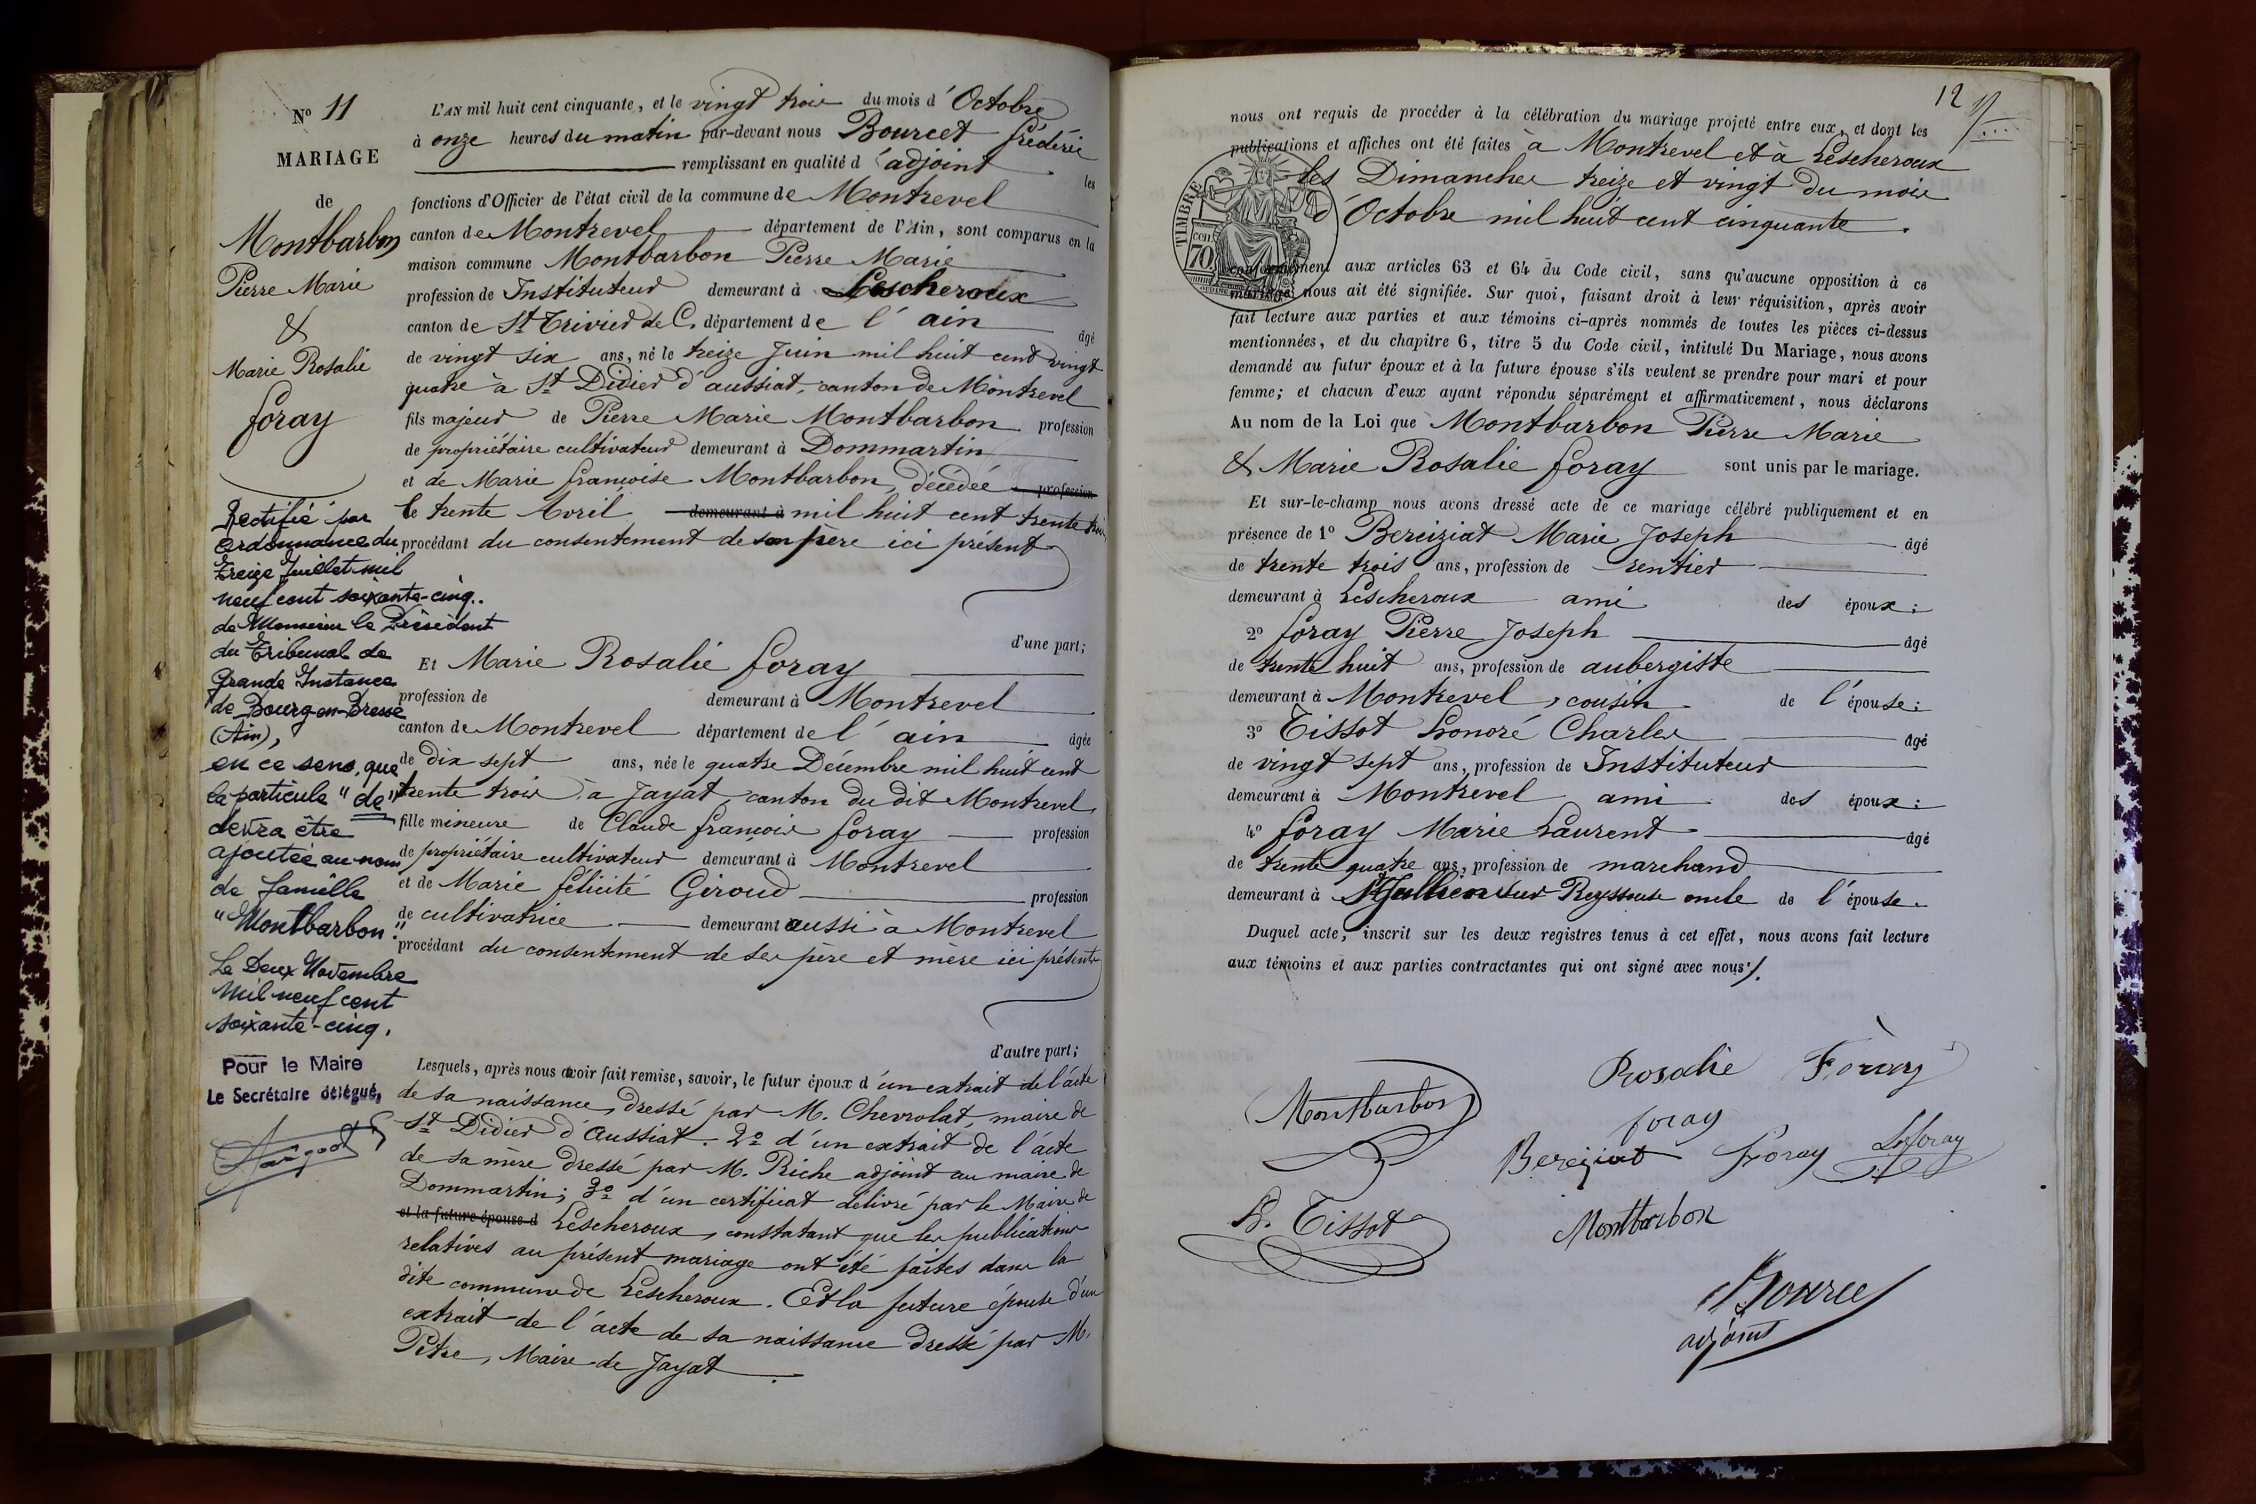 N° 11
MARIAGE
de
Montbarbon
Pierre Marie
&
Marie Rosalie
foray
Rectifié par
ordonnance du
treize Juillet mil
neuf cent soixante-cinq.
de Monsieur le Président
du Tribunal de
Grande Instance
de Bourg-en-Bresse
(Ain),
en ce sens, que
la particule "de"
devra être
ajoutée au nom
de famille
"Montbarbon".
Le Deux Novembre
mil neuf cent
soixante-cinq.
Pour le Maire
Le Secrétaire délégué,
L'AN mil huit cent cinquante, et le vingt trois du mois d'Octobre
à onze heures du matin par-devant nous Bourcet frédéric
remplissant en qualité d'adjoint les
fonctions d'Officier de l'état civil de la commune de Montrevel
canton de Montrevel département de l'Ain, sont comparus en la
maison commune Montbarbon Pierre Marie
profession de Instituteur demeurant à Lescheroux
canton de St Trivier de C. département de l'ain âgé
de vingt six ans, né le treize Juin mil huit cent vingt
quatre à St Didier d'aussiat, canton de Montrevel
fils majeur de Pierre Marie Montbarbon profession
de propriétaire cultivateur demeurant à Dommartin
et de Marie françoise Montbarbon, décédée profession
le trente Avril demeurant à mil huit cent trente trois
procédant du consentement de son père ici présent
d'une part;
Et Marie Rosalie foray
profession de demeurant à Montrevel
canton de Montrevel département de l'ain âgée
de dix sept ans, née le quatre Décembre mil huit cent
trente trois à Jayat, canton du dit Montrevel,
fille mineure de Claude françois foray profession
de propriétaire cultivateur demeurant à Montrevel
et de Marie félicité Giroud profession
de cultivatrice demeurant aussi à Montrevel
procédant du consentement de ses père et mère ici présents
d'autre part;
Lesquels, après nous avoir fait remise, savoir, le futur époux d'un extrait de l'acte
de sa naissance, dressé par M. Chevrolat, maire de
St Didier d'Aussiat. 2° d'un extrait de l'acte
de sa mère dressé par M. Riche adjoint au maire de
Dommartin; 3° d'un certificat délivré par le Maire de
et la future épouse d Lescheroux, constatant que les publications
relatives au présent mariage ont été faites dans la
dite commune de Lescheroux. Et la future épouse d'un
extrait de l'acte de sa naissance dressé par M.
Pitre, Maire de Jayat.
12
nous ont requis de procéder à la célébration du mariage projeté entre eux, et dont les
publications et affiches ont été faites à Montrevel et à Lescheroux
les Dimanches treize et vingt du mois
d'Octobre mil huit cent cinquante.
TIMBRE
70 cen
conformément aux articles 63 et 64 du Code civil, sans qu'aucune opposition à ce
mariage nous ait été signifiée. Sur quoi, faisant droit à leur réquisition, après avoir
fait lecture aux parties et aux témoins ci-après nommés de toutes les pièces ci-dessus
mentionnées, et du chapitre 6, titre 5 du Code civil, intitulé Du Mariage, nous avons
demandé au futur époux et à la future épouse s'ils veulent se prendre pour mari et pour
femme; et chacun d'eux ayant répondu séparément et affirmativement, nous déclarons
Au nom de la Loi que Montbarbon Pierre Marie
& Marie Rosalie foray sont unis par le mariage.
Et sur-le-champ nous avons dressé acte de ce mariage célébré publiquement et en
présence de 1° Bereiziat Marie Joseph âgé
de trente trois ans, profession de rentier
demeurant à Lescheroux ami des époux;
2° foray Pierre Joseph âgé
de trente huit ans, profession de aubergiste
demeurant à Montrevel, cousin de l'épouse;
3° Tissot honoré Charles âgé
de vingt sept ans, profession de Instituteur
demeurant à Montrevel ami des époux;
4° foray Marie Laurent âgé
de trente quatre ans, profession de marchand
demeurant à St Jullien sur Reyssouse oncle de l'épouse.
Duquel acte, inscrit sur les deux registres tenus à cet effet, nous avons fait lecture
aux témoins et aux parties contractantes qui ont signé avec nous.
Montbarbon
Rosalie Foray
foray
Bereiziat
foray
Lx foray
h. Tissot
Montbarbon
Bource
adjoint